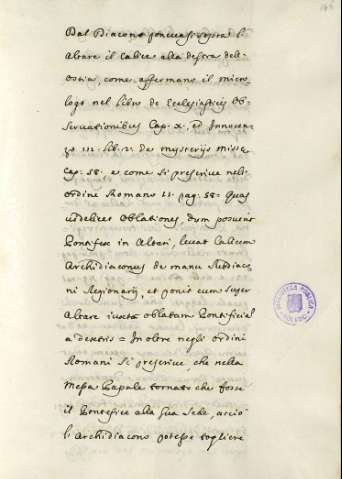 Dal Diacono poneuasi sopra l'
Altare il Calice alla destra dell'
ostia, come affermano il micro-
logo nel libro de Ecclesiasticis Ob-
servationibus Cap. X, ed Innocen-
zo III. lib. 2. de mysterijs missæ
cap. 58. e come si prescrive nell'
ordine Romano II. pag. 58: Quas
videlicet oblationes, dum posuerit
Pontifex in Altari, levat Calicem
Archidiaconus de manu Subdiaco-
ni Regionarij, et ponit eum super
Altare iuxta oblatam Pontificis
a dextris = In oltre negli ordini
Romani si prescrive, che nella
Messa Papale tornato che fosse
il Pontefice alla sua Sede, acciò
l'Archidiacono potesse togliere
BIBLIOTECA PUBLICA
TOLEDO